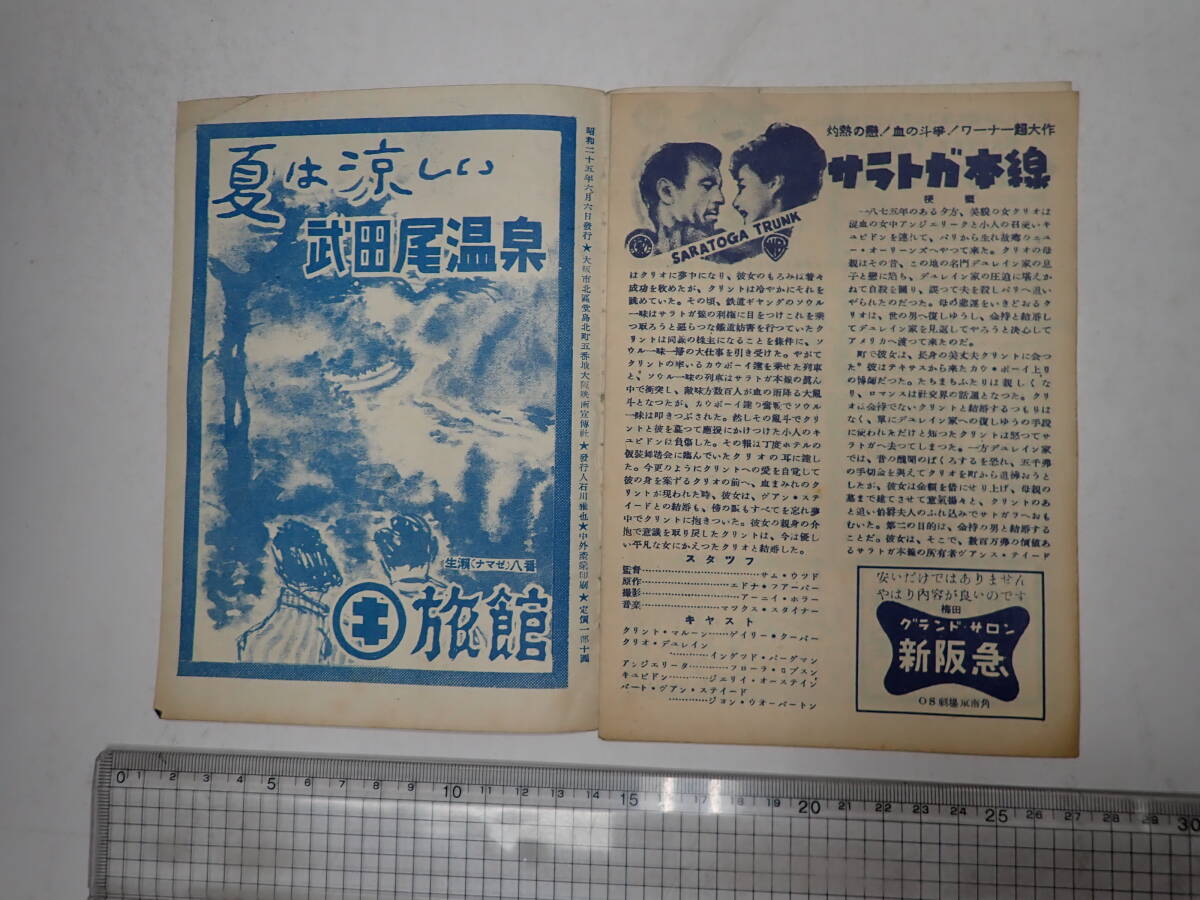 夏は涼しい
武田尾温泉
生瀬(ナマゼ)八番
キ旅館
昭和二十五年六月六日發行★大阪市北區堂島北町五番地大阪映画宣傳社★發行人石川雅也★中外商業印刷★定價一部十圓
灼熱の戀!血の斗爭!ワーナー超大作
サラトガ本線
SARATOGA TRUNK
WB
梗槪
一八七五年のある夕方、美貌の女クリオは
混血の女中アンジェリークと小人の召使いキ
ユピドンを連れて、パリから生れ故郷のニユ
ー・オーリーンズへやつて来た。クリオの母
親はその昔、この地の名門デュレイン家の息
子と戀に陷ち、デュレイン家の圧迫に堪えか
ねて自殺を圖り、誤つて夫を殺しパリへ追い
やられたのだつた。母の悲運をいきどおるク
リオは、世の男へ復しゆうし、金持と結婚し
てデュレイン家を見返してやろうと決心して
アメリカへ渡つて来たのだ。
町で彼女は、長身の美丈夫クリントに会つ
た 彼はテキサスから来たカウ・ボーイ上り
の博師だつた。たちまちふたりは親しくな
り、ロマンスは社交界の話題となつた。クリ
オは金持でないクリントと結婚するつもりは
なく、單にデュレイン家への復しゆうの手段
に使われただけと知つたクリントは怒つてサ
ラトガへ去つてしまつた。一方デュレイン家
では、昔の醜聞のばくろするを恐れ、五千弗
の手切金を與えてクリオを町から追拂おうと
したが、彼女は金額を倍にせり上げ、母親の
墓まで建てさせて意氣揚々と、クリントのあ
と追い伯爵夫人のふれ込みでサトガラへおも
むいた。第二の目的は、金持の男と結婚する
ことだ。彼女は、そこで、数百万弗の價値あ
るサラトガ本線の所有者ヴアンス・テイード
はクリオに夢中になり、彼女のもろみは着々
成功を收めたが、クリントは冷やかにそれを
眺めていた。その頃、鉄道ギヤングのソウル
一味はサラトガ線の利権に目をつけこれを乘
つ取ろうと廻らつな鐵道妨害を行つていたク
リントは同線の株主になることを條件に、ソ
ウル一味一掃の大仕事を引き受けた。やがて
クリントの率いるカウボーイ達を乘せた列車
と、ソウル一味の列車はサラトガ本線の眞ん
中で衝突し、敵味方数百人が血の雨降る大亂
斗となつたが、カウボーイ達の奮戰でソウル
一味は叩きつぶされた。然しその亂斗でクリ
ントと彼を墓つて應援にかけつけた小人のキ
ユピドンは負傷した。その報は丁度ホテルの
仮装舞踏会に臨んでいたクリオの耳に達し
た。今更のようにクリントへの愛を自覚して
彼の身を案ずるクリオの前へ、血まみれのク
リントが現われた時、彼女は、ヴアン・ステ
イードとの結婚も、傍の眼もすべてを忘れ夢
中でクリントに抱きついた。彼女の親身の介
抱で意識を取り戻したクリントは、今は優し
い平凡な女にかえつたクリオと結婚した。
スタツフ
監督……………………サム・ウツド
原作……………エドナ・フアーバー
撮影……………アーニイ・ホラー
音楽…………マツクス・スタイナー
キャスト
クリント・マルーン……ゲイリー・クーパー
クリオ・デュレイン
…………イングツド・バーグマン
アンジエリータ………フローラ・ロブスン
キユピドン………ジェリイ・オーステイン
バート・ヴアン・ステイード
…………ジョン・ウオーバートン
安いだけではありません
やはり内容が良いのです
梅田
グランド・サロン
新阪急
OS劇場东南角
0 1 2 3 4 5 6 7 8 9 10 11 12 13 14 15 16 17 18 19 20 21 22 23 24 25 26 27 28 29 30